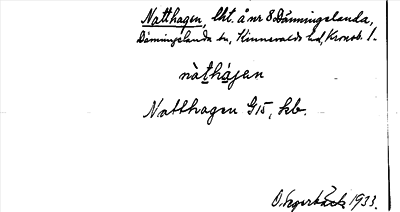 Natthagen, lht. å nr 8 Dänningelanda,
Dänningelanda sn, Kinnevalds hd, Kronob. l.
nàthájen
Natthagen G15, kb.
O. Lagerbäck 1933.